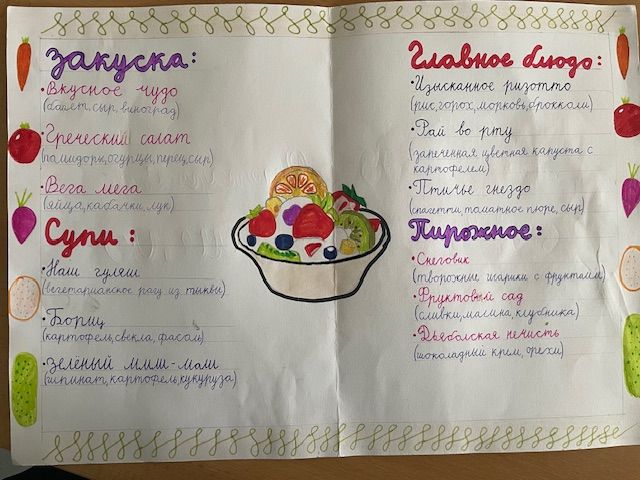 Закуска:
• Вкусное чудо
(багет, сыр, виноград)
• Греческий салат
(помидоры, огурцы, перец, сыр)
• Вега мега
(яйца, кабачки, лук)
Супы:
• Наш гуляш
(вегетарианское рагу из тыквы)
• Борщ
(картофель, свекла, фасоль)
• Зелёный миш-маш
(шпинат, картофель, кукуруза)
Главное блюдо:
• Изысканное ризотто
(рис, горох, морковь, брокколи)
• Рай во рту
(запеченная цветная капуста с
картофелем)
• Птичье гнездо
(спагетти, томатное пюре, сыр)
Пирожное:
• Снеговик
(творожные шарики с фруктами)
• Фруктовый сад
(сливки, малина, клубника)
• Дьяболская нечисть
(шоколадный крем, орехи)